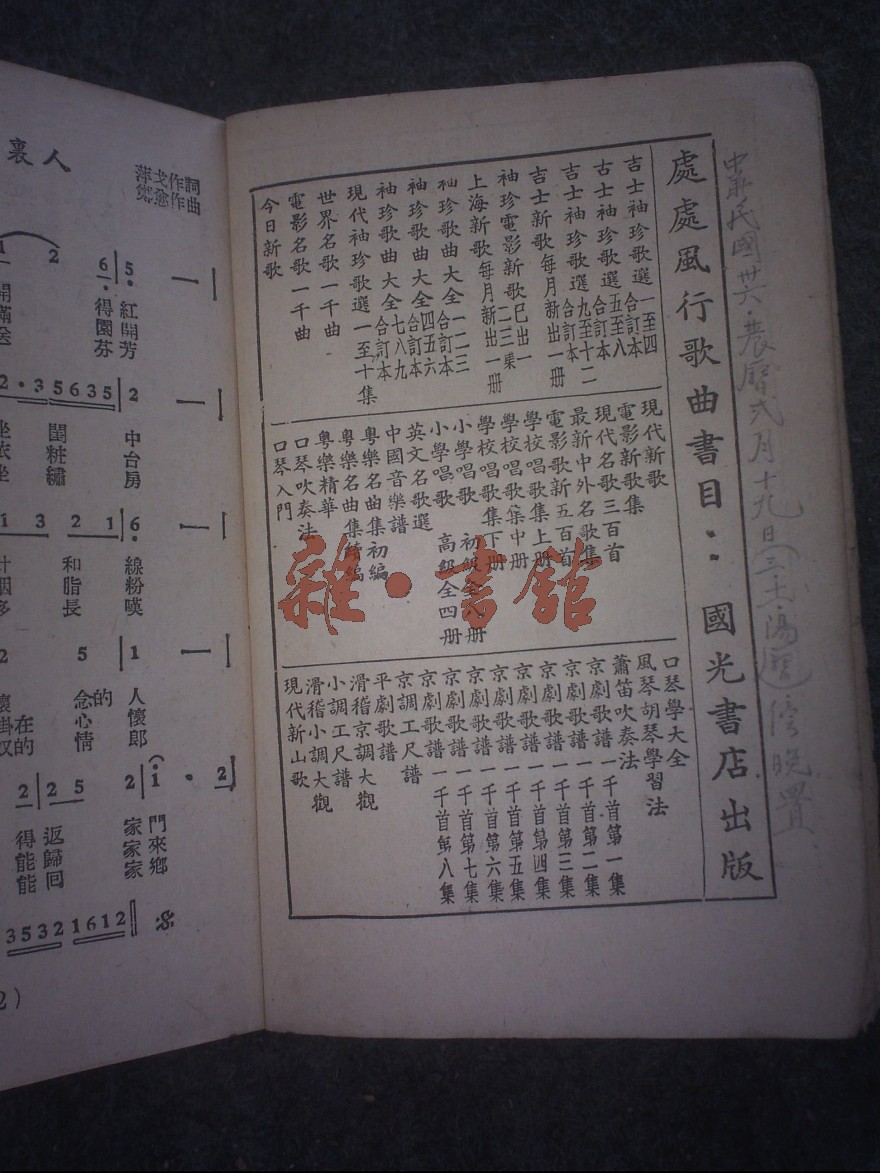 處處風行歌曲書目：國光書店出版
吉士袖珍歌選 一至四合訂本
古士袖珍歌選 五至八合訂本
吉士袖珍歌選 九至十二合訂本
吉士新歌每月新出一册
袖珍電影新歌已出一二三集
上海新歌每月新出一册
袖珍歌曲大全 一二三合訂本
袖珍歌曲大全 四五六合訂本
袖珍歌曲大全 七八九合訂本
現代袖珍歌選一至十集
世界名歌一千曲
電影名歌一千曲
今日新歌
現代新歌
電影新歌集
現代名歌三百首
最新中外名歌集
電影歌新五百首
學校唱歌集上册
學校唱歌集中册
學校唱歌集下册
小學唱歌 初級全八册
小學唱歌 高級全四册
英文名歌選
中國音樂譜
粵樂名曲集初編
粵樂名曲集續編
粵樂精華
口琴吹奏法
口琴入門
口琴學大全
風琴胡琴學習法
蕭笛吹奏法
京劇歌譜一千首第一集
京劇歌譜一千首第二集
京劇歌譜一千首第三集
京劇歌譜一千首第四集
京劇歌譜一千首第五集
京劇歌譜一千首第六集
京劇歌譜一千首第七集
京劇歌譜一千首第八集
京調工尺譜
平劇歌譜
滑稽京調大觀
小調工尺譜
滑稽小調大觀
現代新山歌
中華民國卅六·農曆弍月十九日(三·十·陽曆)傍晚置
裏人
詞曲
作作
6 5·
得 紅開芳
園芬
2·3 5635 2
閨粧繡 中台房
1 3 2 1 6·
和脂長 線粉嘆
2 5 1
念心情 的 人懷郎
2 2 5 2 1· 2
得能能 返歸回 家家家 門來鄉
3532 1612
2)
雜·書舘